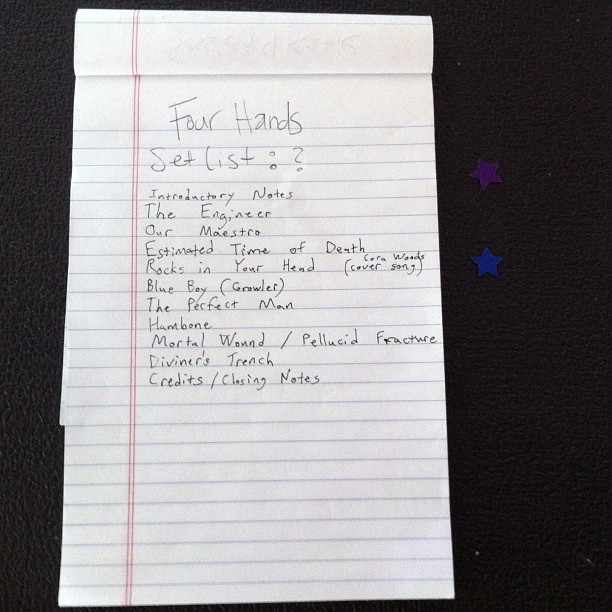 Four Hands
Set list : ?
Introductory Notes
The Engineer
Our Maestro
Estimated Time of Death
Rocks in Your Head (Cora Woods cover song)
Blue Boy (Growler)
The Perfect Man
Hambone
Mortal Wound / Pellucid Fracture
Diviner's Trench
Credits / Closing Notes